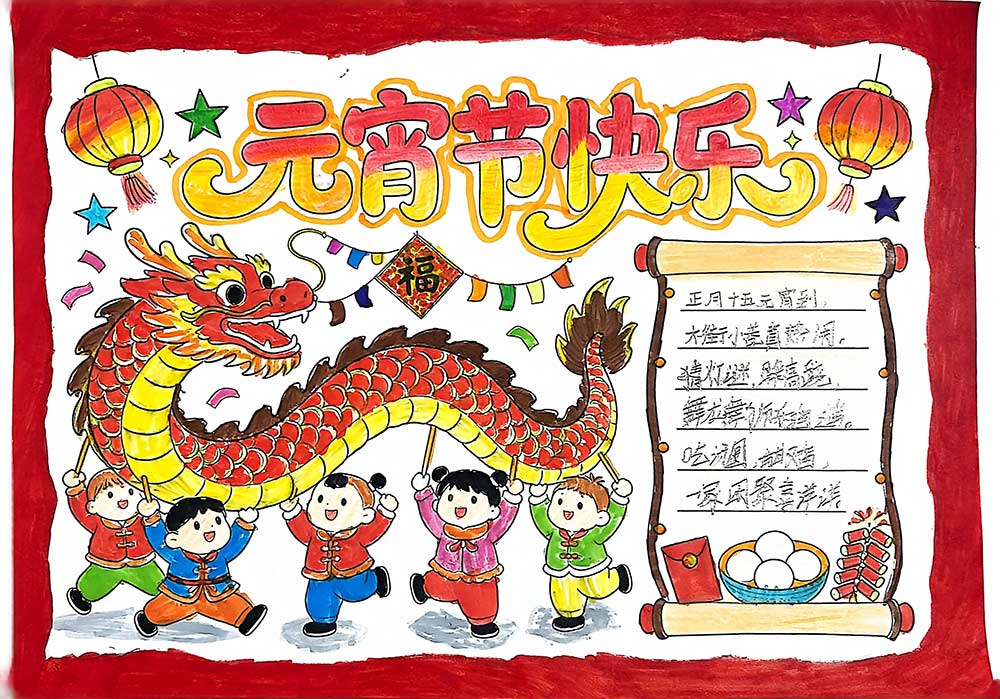 元宵节快乐
福
正月十五元宵到，
大街小巷真热闹。
猜灯谜，踩高跷，
舞龙舞狮
吃汤圆，
一家团聚喜洋洋